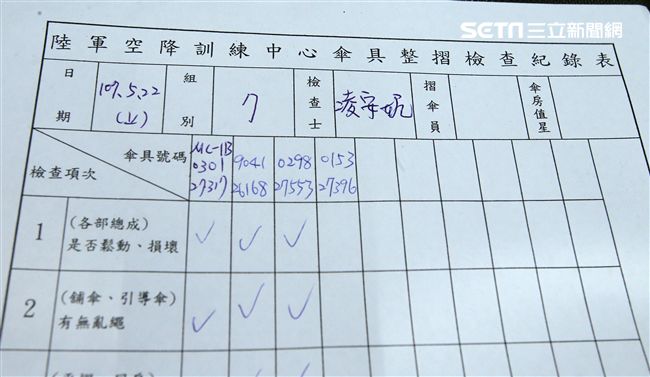 SETN 三立新聞網
陸軍空降訓練中心傘具整摺檢查紀錄表
日期 107.5.22 (上) 組別 7 檢查士 凌安妮 摺傘員 傘房值星
傘具號碼 MC-1B 0301 27317 9041 26168 0298 27553 0153 27396
檢查項次
1 (各部總成) 是否鬆動、損壞 ✓ ✓ ✓
2 (舖傘、引導傘) 有無亂繩 ✓ ✓ ✓